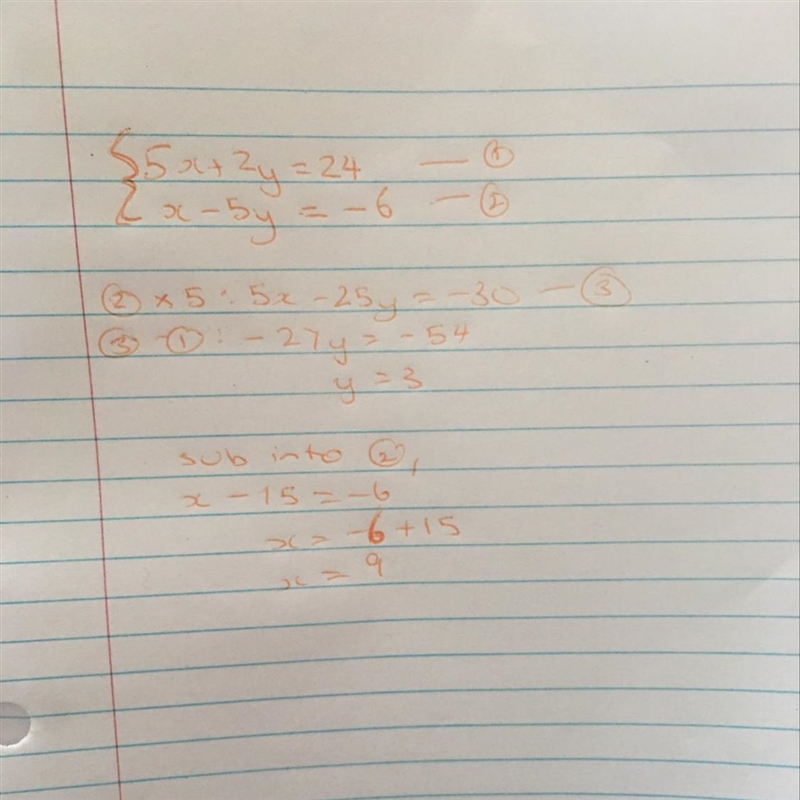 { 5x + 2y = 24 — ①
{ x - 5y = -6 — ②
② × 5 : 5x - 25y = -30 — ③
③ - ① : -27y = -54
y = 3
sub into ②,
x - 15 = -6
x = -6 + 15
x = 9